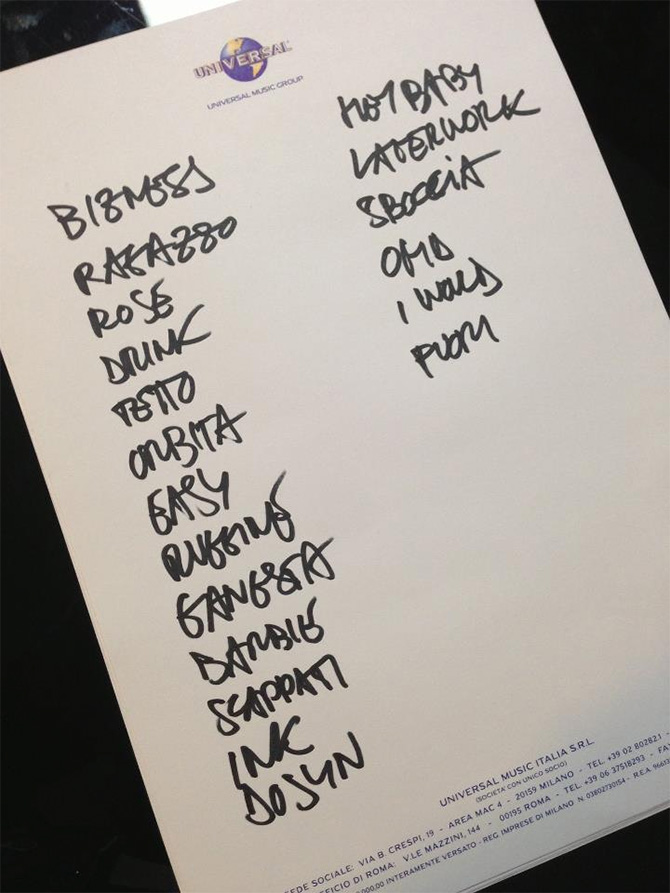 UNIVERSAL
UNIVERSAL MUSIC GROUP
BIZNESS
RAGAZZO
ROSE
DRINK
TETTO
ORBITA
EASY
RUGGINE
GANGSTA
BARBIE
SCAPPATI
INK
HEY BABY
LAVERWORK
SBOCCIA
OMD
I WOULD
FUORI
UNIVERSAL MUSIC ITALIA S.R.L.
(SOCIETÀ CON UNICO SOCIO)
SEDE SOCIALE: VIA B. CRESPI, 19 - AREA MAC 4 - 20159 MILANO - TEL. +39 02 802821
FFICIO DI ROMA: V.LE MAZZINI, 144 - 00195 ROMA - TEL. +39 06 37518293 - FA
000,00 INTERAMENTE VERSATO - REG. IMPRESE DI MILANO N. 03802730154 - R.E.A. 9661